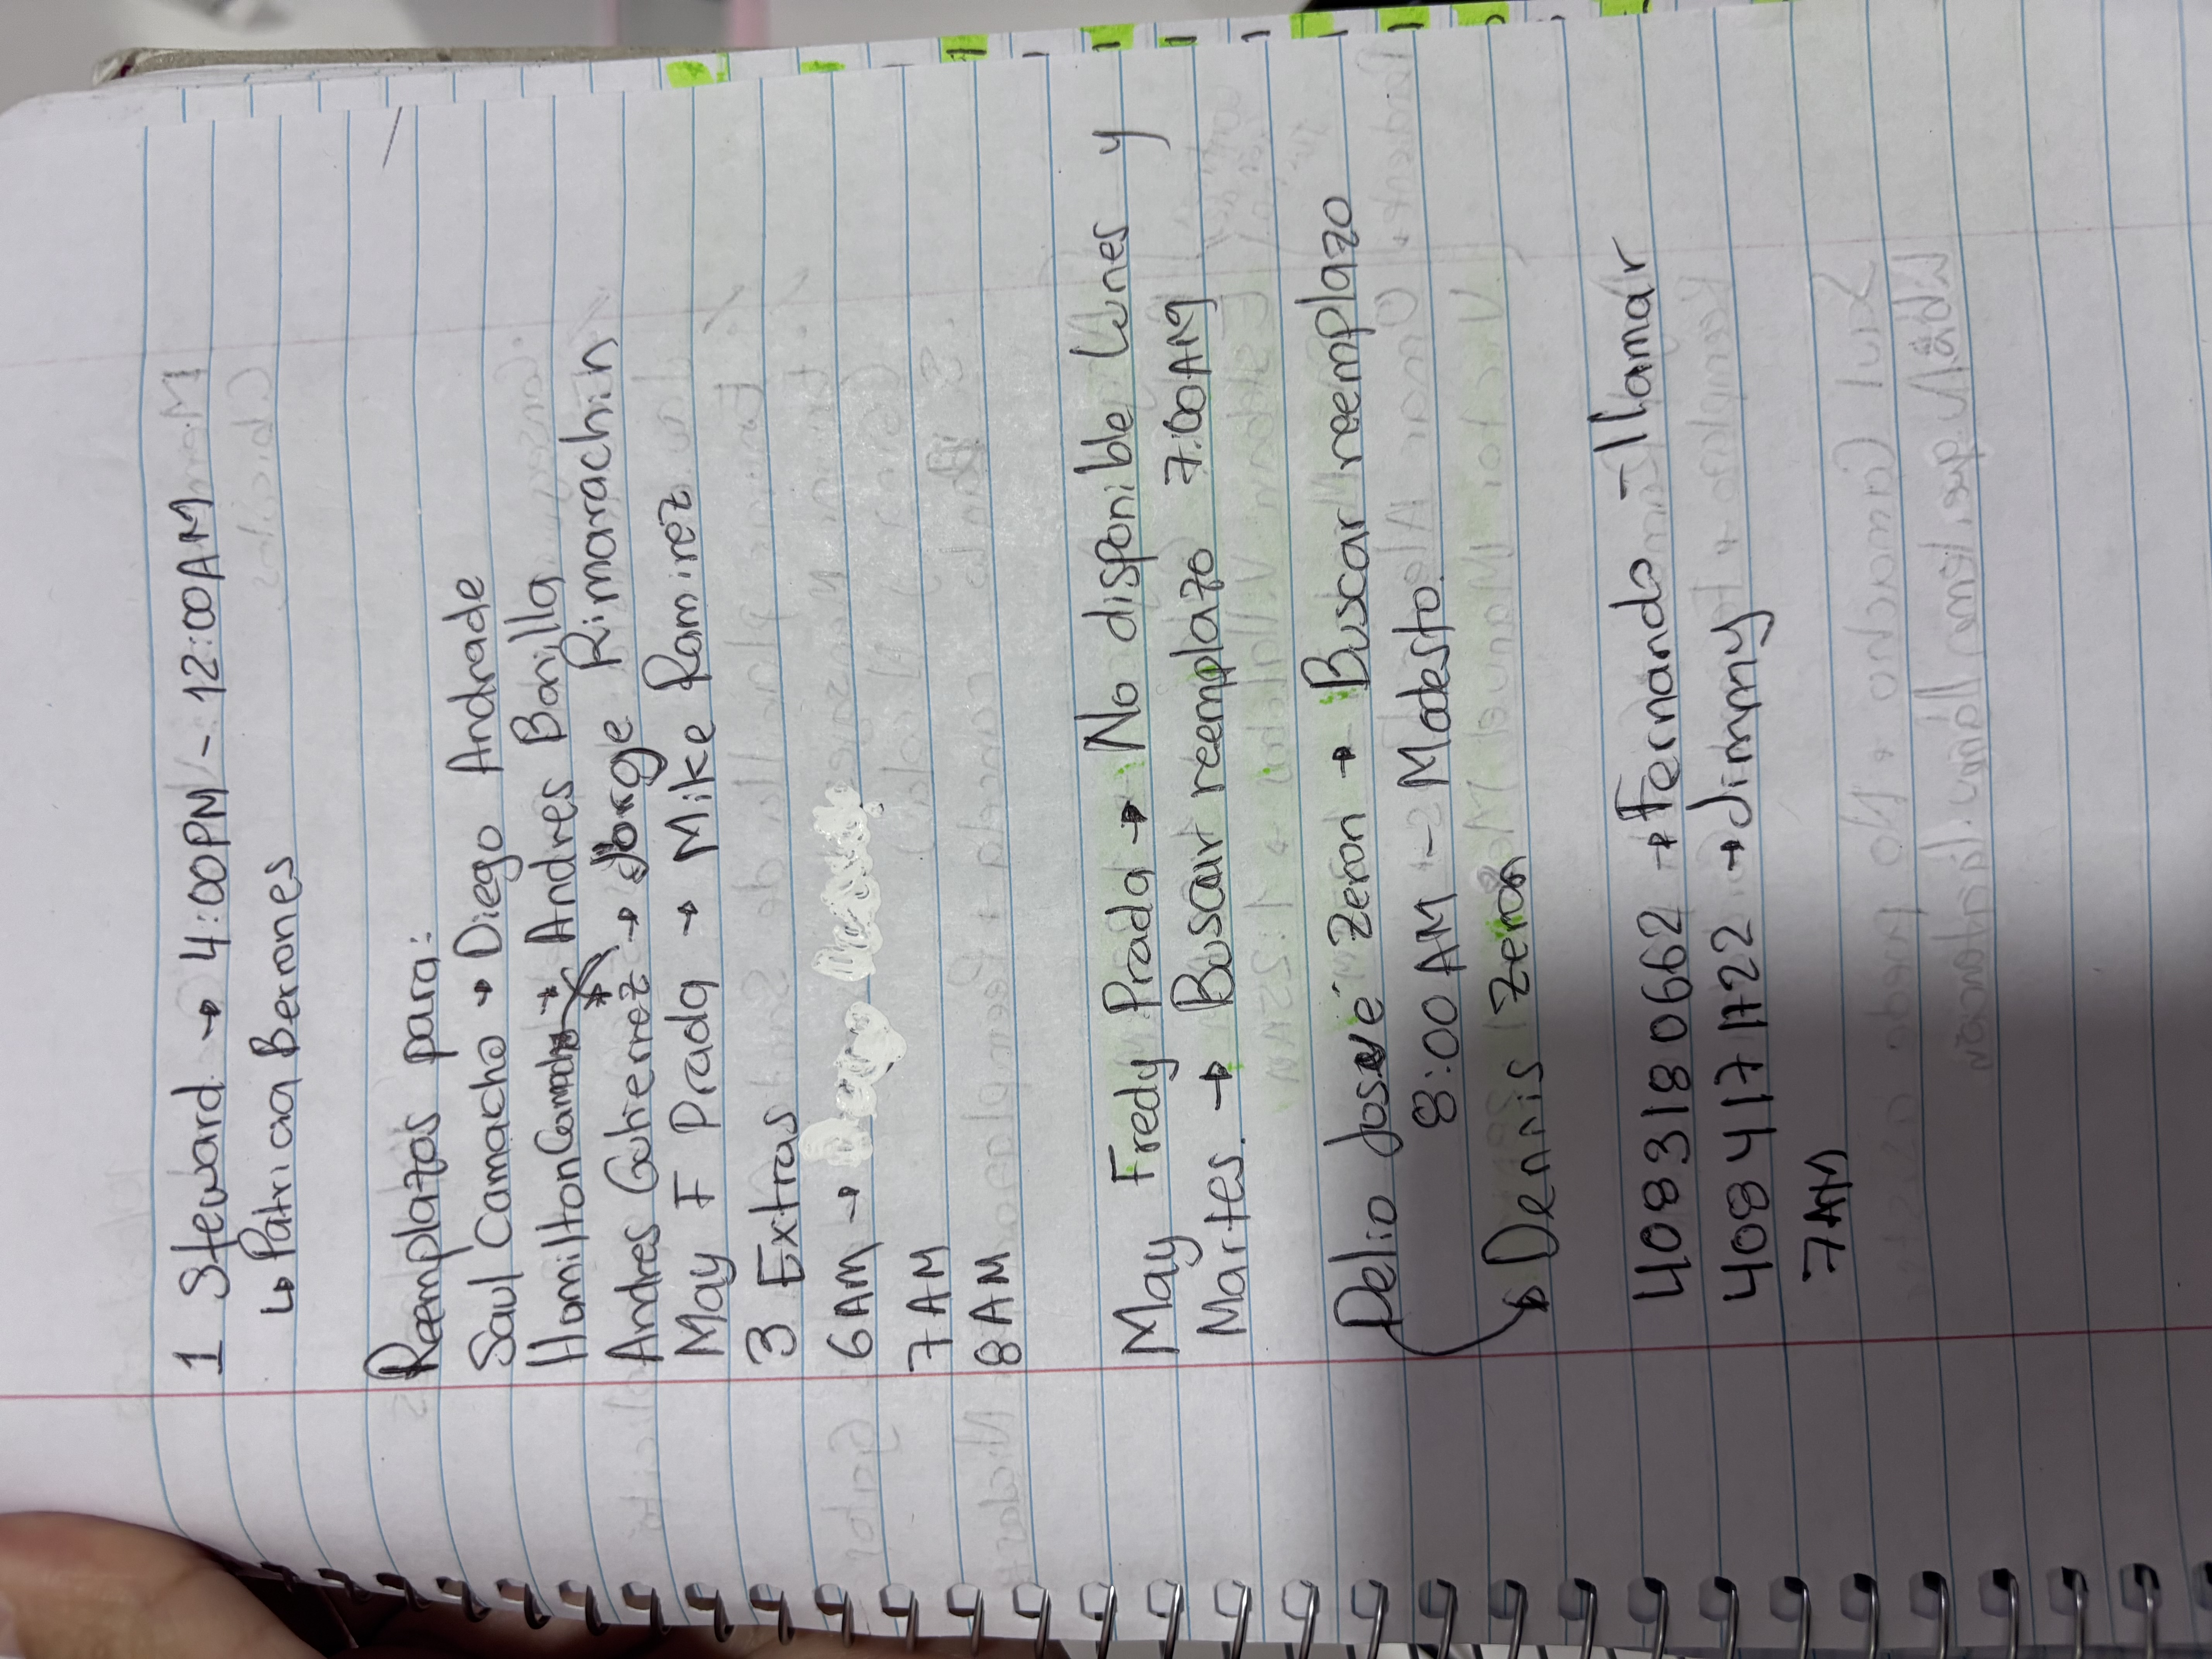 1 Steward → 4:00PM - 12:00AM
↳ Patricia Berrones
Reemplazos para:
Saul Camacho → Diego Andrade
Hamilton Camacho → Andres Bonilla
Andres Gutierrez → Jorge Rimarachin
May F Prada → Mike Ramirez
3 Extras
6AM →
7AM
8AM
May Fredy Prada → No disponible Lunes y
Martes. → Buscar reemplazo 7:00AM
Delio José Zeron → Buscar reemplazo
8:00AM - Modesto.
↳ Dennis Zeron
4083180662 → Fernando - llamar
4084171722 → Jimmy
7AM